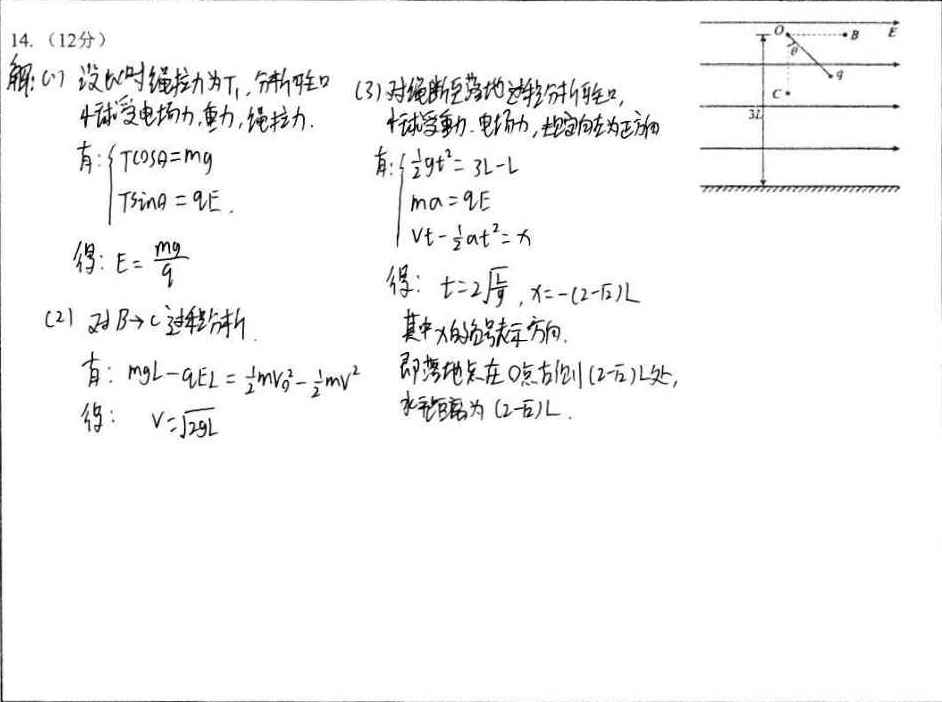 14.（12分）
解:(1) 设此时绳拉力为T₁, 分析可知
小球受电场力,重力,绳拉力.
有: Tcosθ=mg
Tsinθ = qE.
得: E= mg/q
(2) 对B→C过程分析.
有: mgL-qEL = ½mv₀²-½mv²
得: V=√2gL
(3) 对绳断至落地过程分析可知,
小球受重力.电场力,规定向左为正方向
有: ½gt²= 3L-L
ma=qE
Vt-½at²=x
得: t=2√(L/g), x=-(2-√2)L
其中x的负号表示方向.
即落地点在O点右侧(2-√2)L处,
水平距离为(2-√2)L.
O B E
θ
q
C
3L